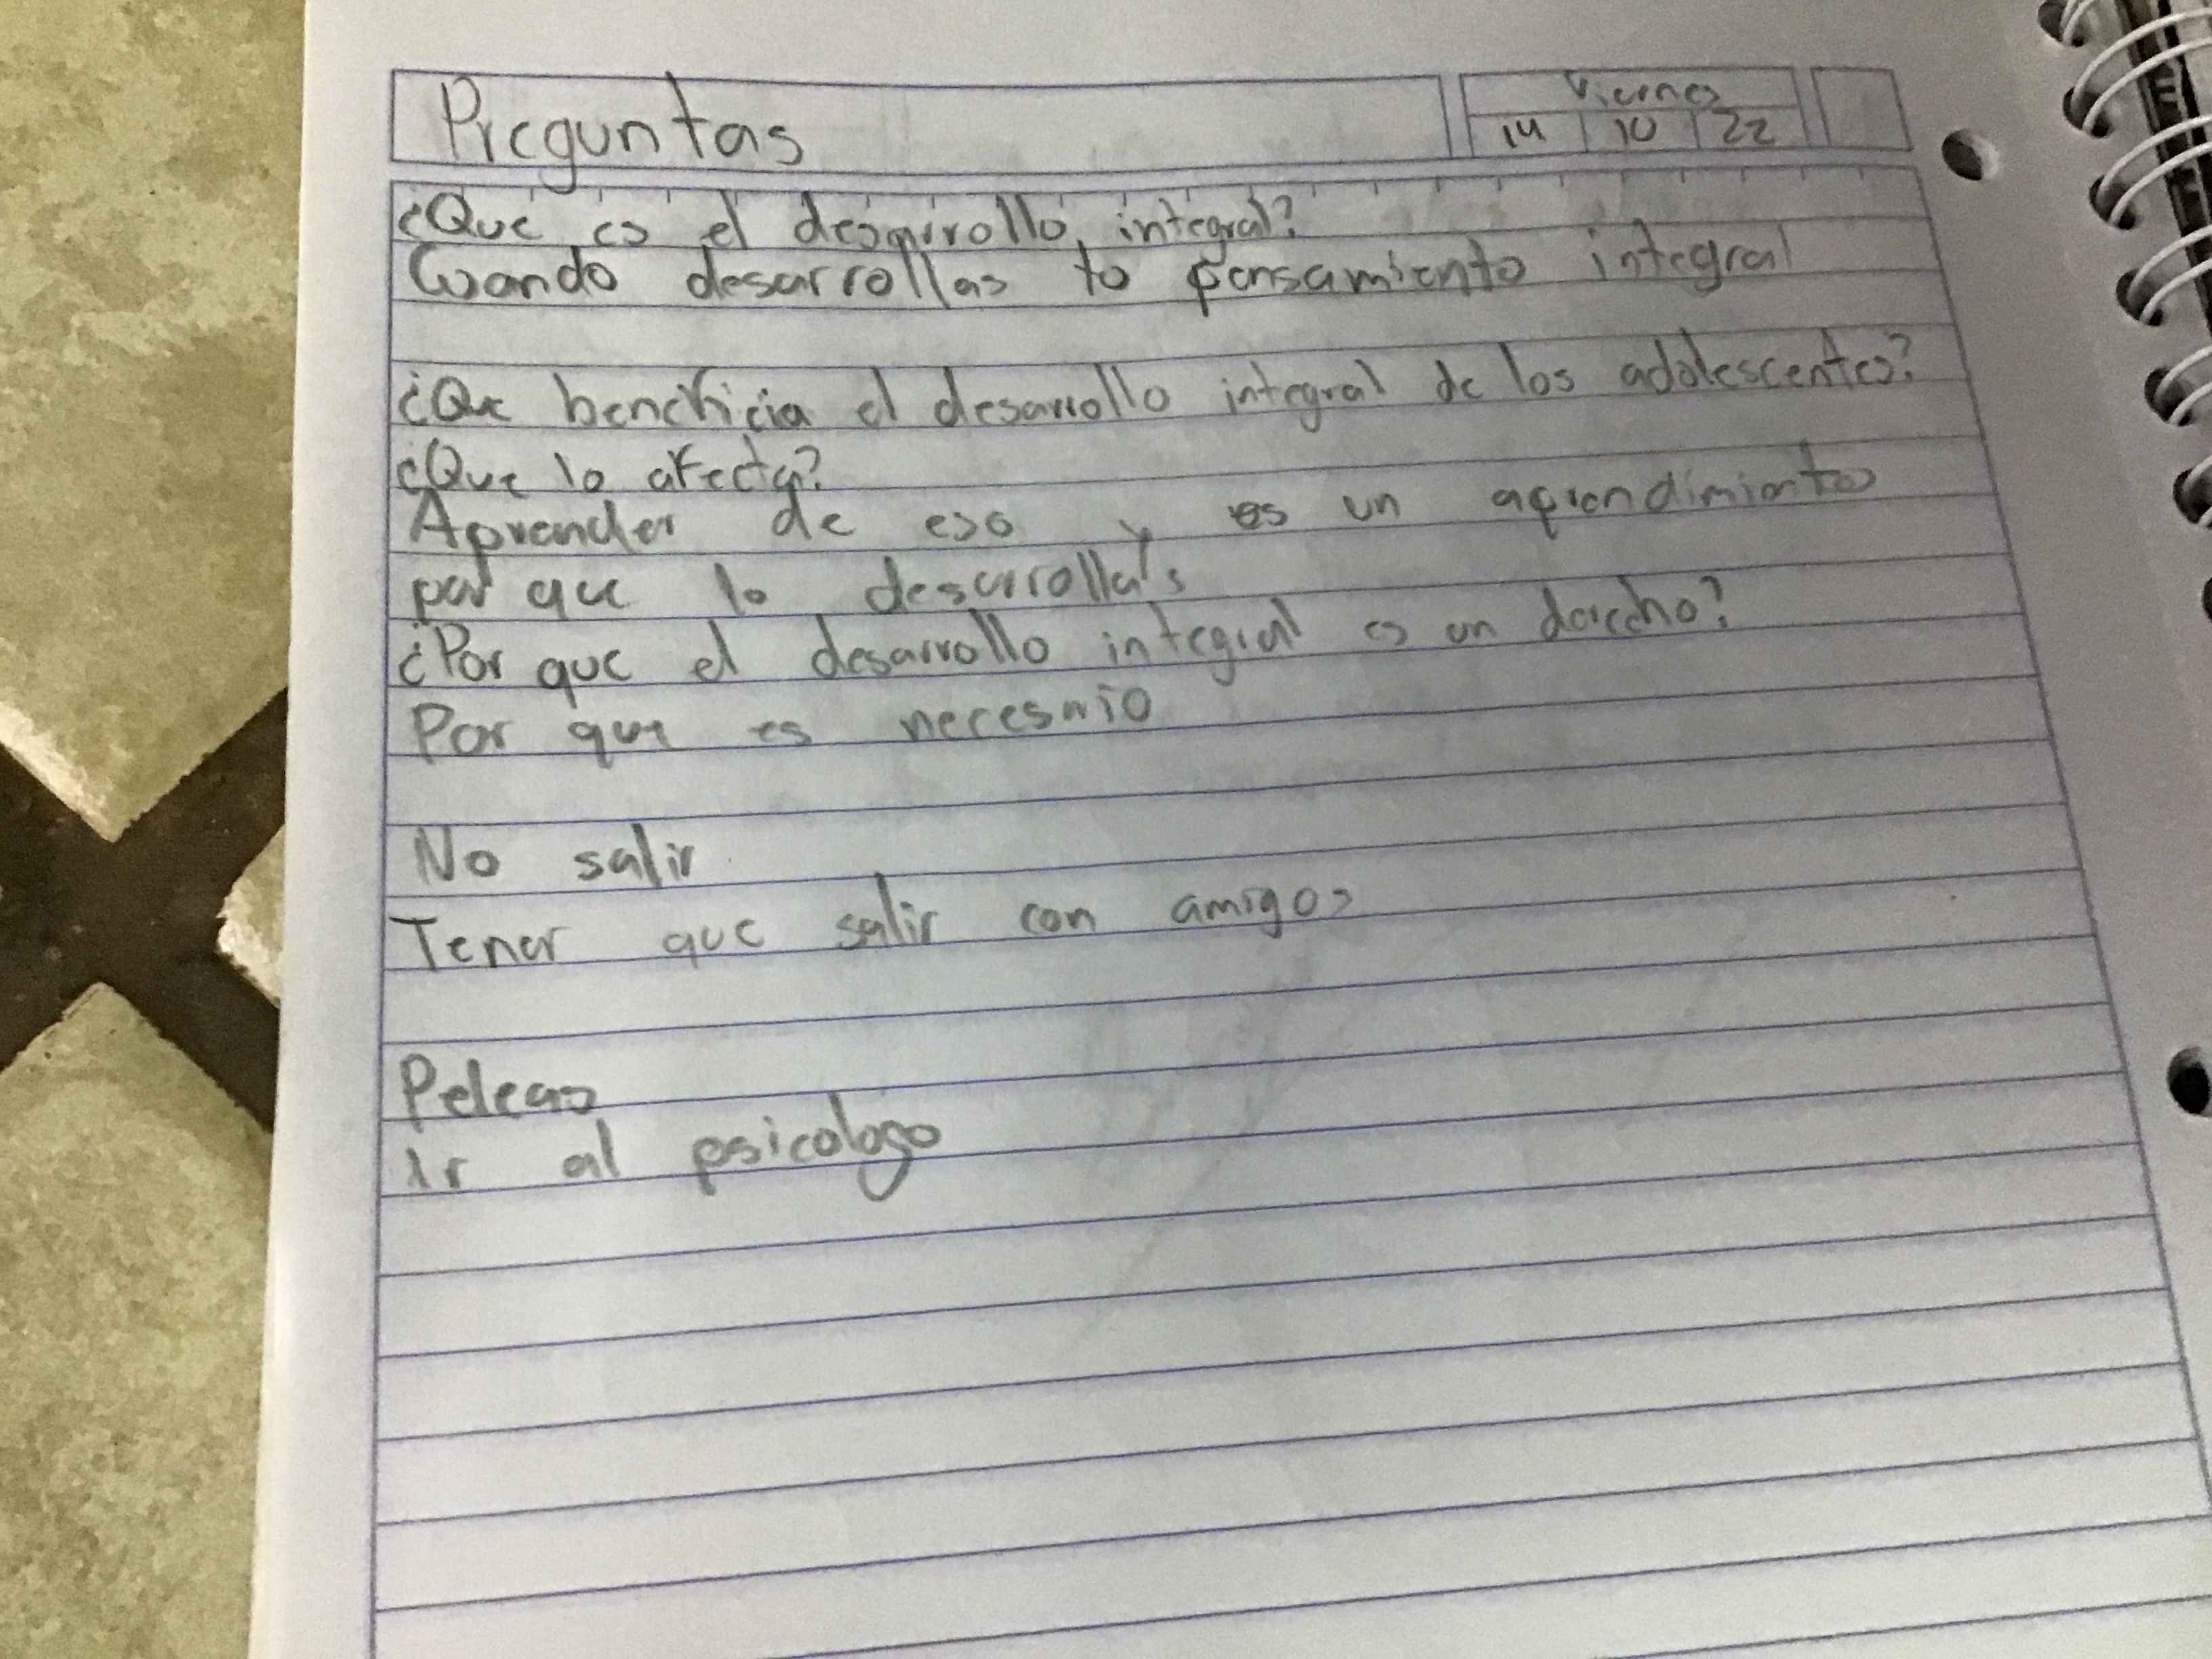 Preguntas
Viernes
14 10 22
¿Que es el desarrollo integral?
Cuando desarrollas tu pensamiento integral
¿Que beneficia el desarrollo integral de los adolescentes?
¿Que lo afecta?
Aprender de eso y es un aprendimiento
por que lo desarrollas
¿Por que el desarrollo integral es un derecho?
Por que es necesario
No salir
Tener que salir con amigos
Peleas
Ir al psicologo